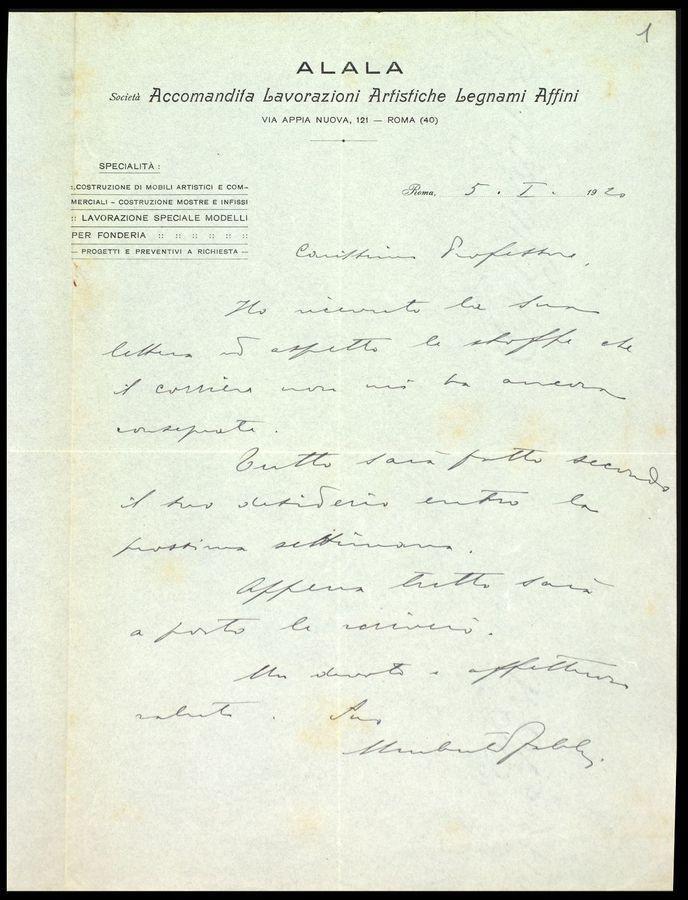 1
ALALA
Società Accomandita Lavorazioni Artistiche Legnami Affini
VIA APPIA NUOVA, 121 — ROMA (40)
SPECIALITÀ :
::COSTRUZIONE DI MOBILI ARTISTICI E COM-
MERCIALI - COSTRUZIONE MOSTRE E INFISSI
:: LAVORAZIONE SPECIALE MODELLI
PER FONDERIA :: :: :: :: :: ::
— PROGETTI E PREVENTIVI A RICHIESTA —
Roma, 5 . I . 1920
Carissimo Professore,
Ho ricevuto la sua
lettera ed aspetto le stoffe che
il corriere non mi ha ancora
consegnate.
Tutto sarà fatto secondo
il suo desiderio entro la
prossima settimana.
Appena tutto sarà
a posto le scriverò.
Un devoto e affettuoso
saluto. Suo
Umberto